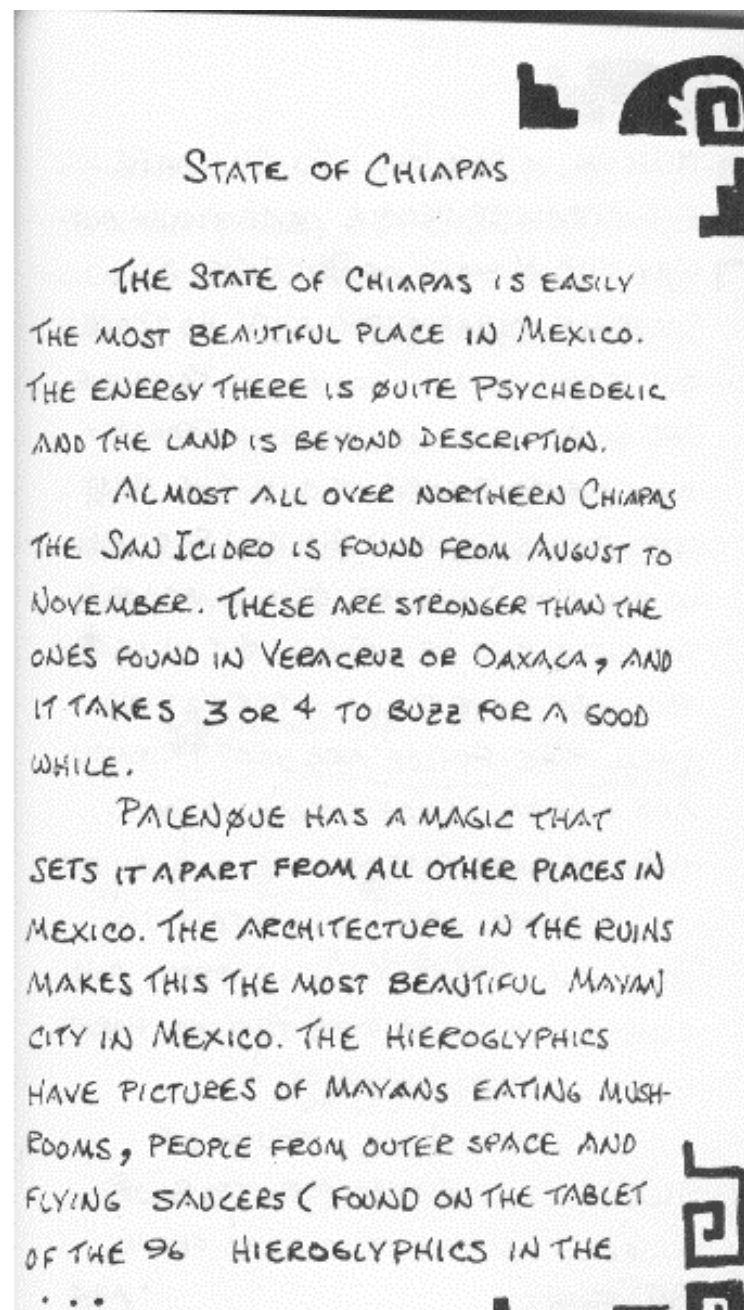 STATE OF CHIAPAS
THE STATE OF CHIAPAS IS EASILY
THE MOST BEAUTIFUL PLACE IN MEXICO.
THE ENERGY THERE IS QUITE PSYCHEDELIC
AND THE LAND IS BEYOND DESCRIPTION.
ALMOST ALL OVER NORTHERN CHIAPAS
THE SAN ICIDRO IS FOUND FROM AUGUST TO
NOVEMBER. THESE ARE STRONGER THAN THE
ONES FOUND IN VERACRUZ OR OAXACA, AND
IT TAKES 3 OR 4 TO BUZZ FOR A GOOD
WHILE.
PALENQUE HAS A MAGIC THAT
SETS IT APART FROM ALL OTHER PLACES IN
MEXICO. THE ARCHITECTURE IN THE RUINS
MAKES THIS THE MOST BEAUTIFUL MAYAN
CITY IN MEXICO. THE HIEROGLYPHICS
HAVE PICTURES OF MAYANS EATING MUSH-
ROOMS, PEOPLE FROM OUTER SPACE AND
FLYING SAUCERS (FOUND ON THE TABLET
OF THE 96 HIEROGLYPHICS IN THE
...